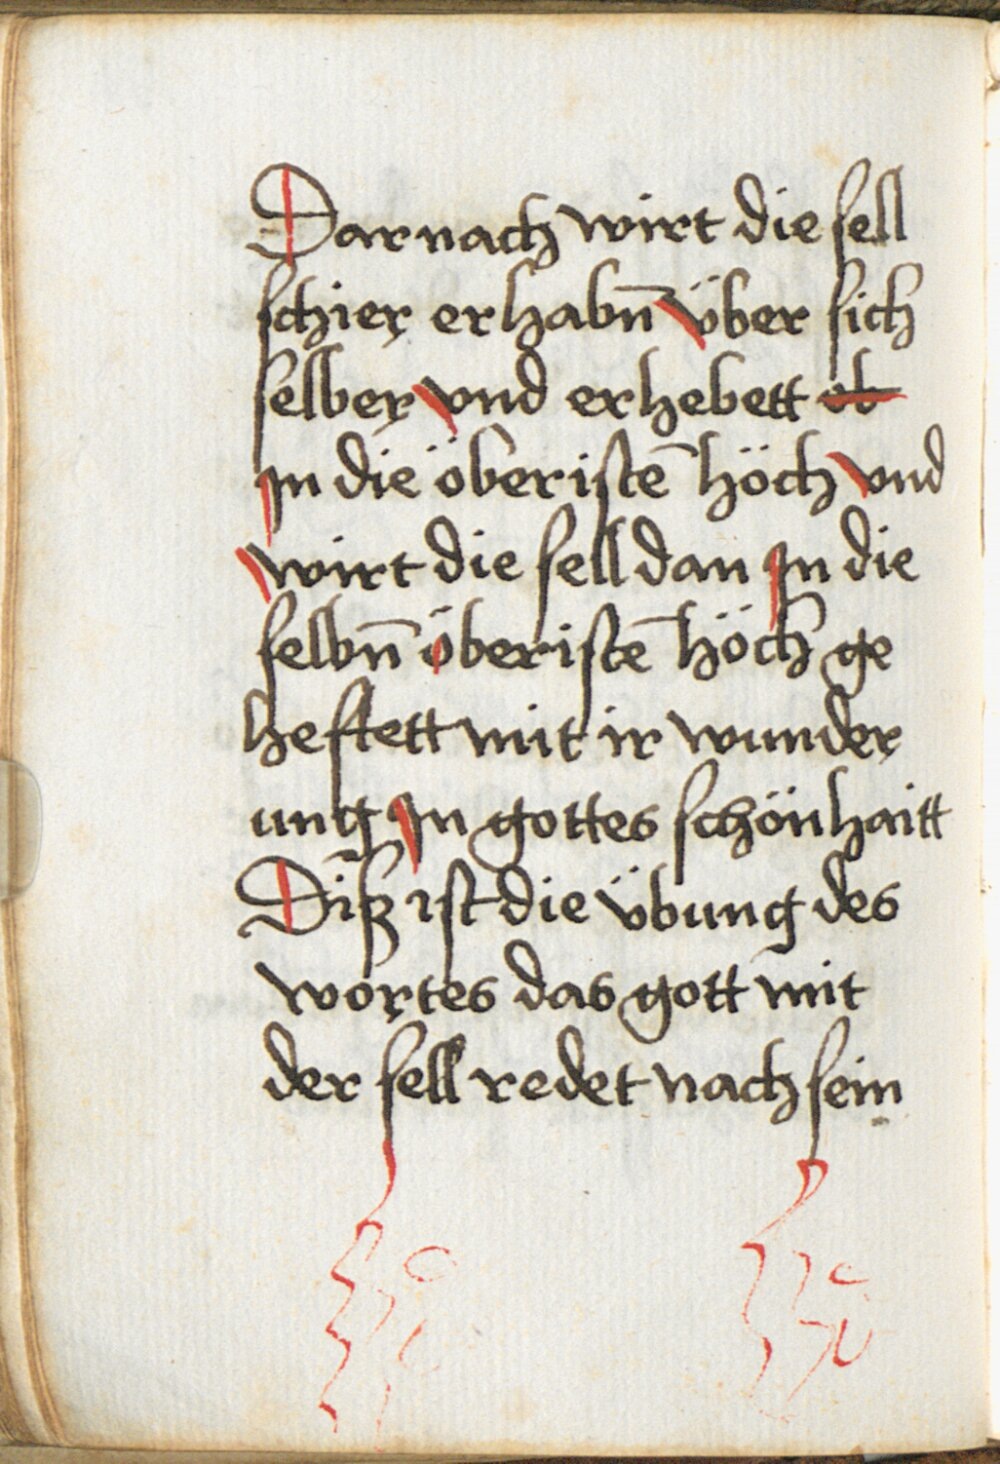 Darnach wirt die sell
schier erhabn̄ über sich
selber vnd erhebett ob
Jn die öberistē höch vnd
wirt die sell dan Jn die
selbn̄ öberistē höch ge
hefftett mit ir wunder
ung Jn gottes schönhaitt
Diß ist die übung des
wortes das gott mit
der sell redet nach sein